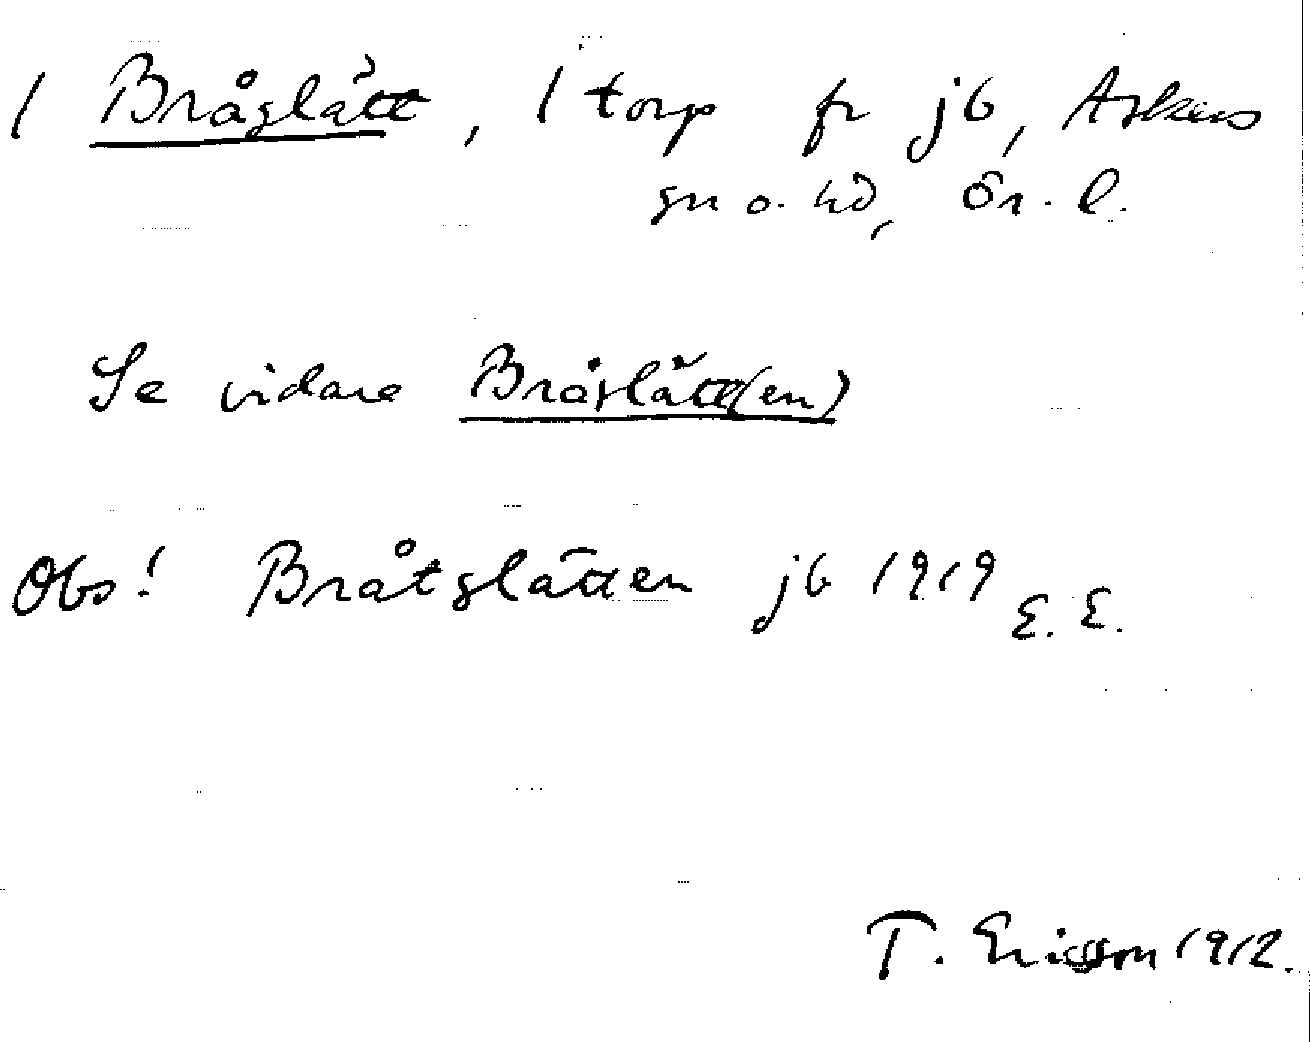 1 Bråslätt, 1 torp fr jb, Askers
sn o. hd, Ör. l.
Se vidare Bråslätt(en)
Obs! Bråtslätten jb 1919 E. E.
T. Ericsson 1912.